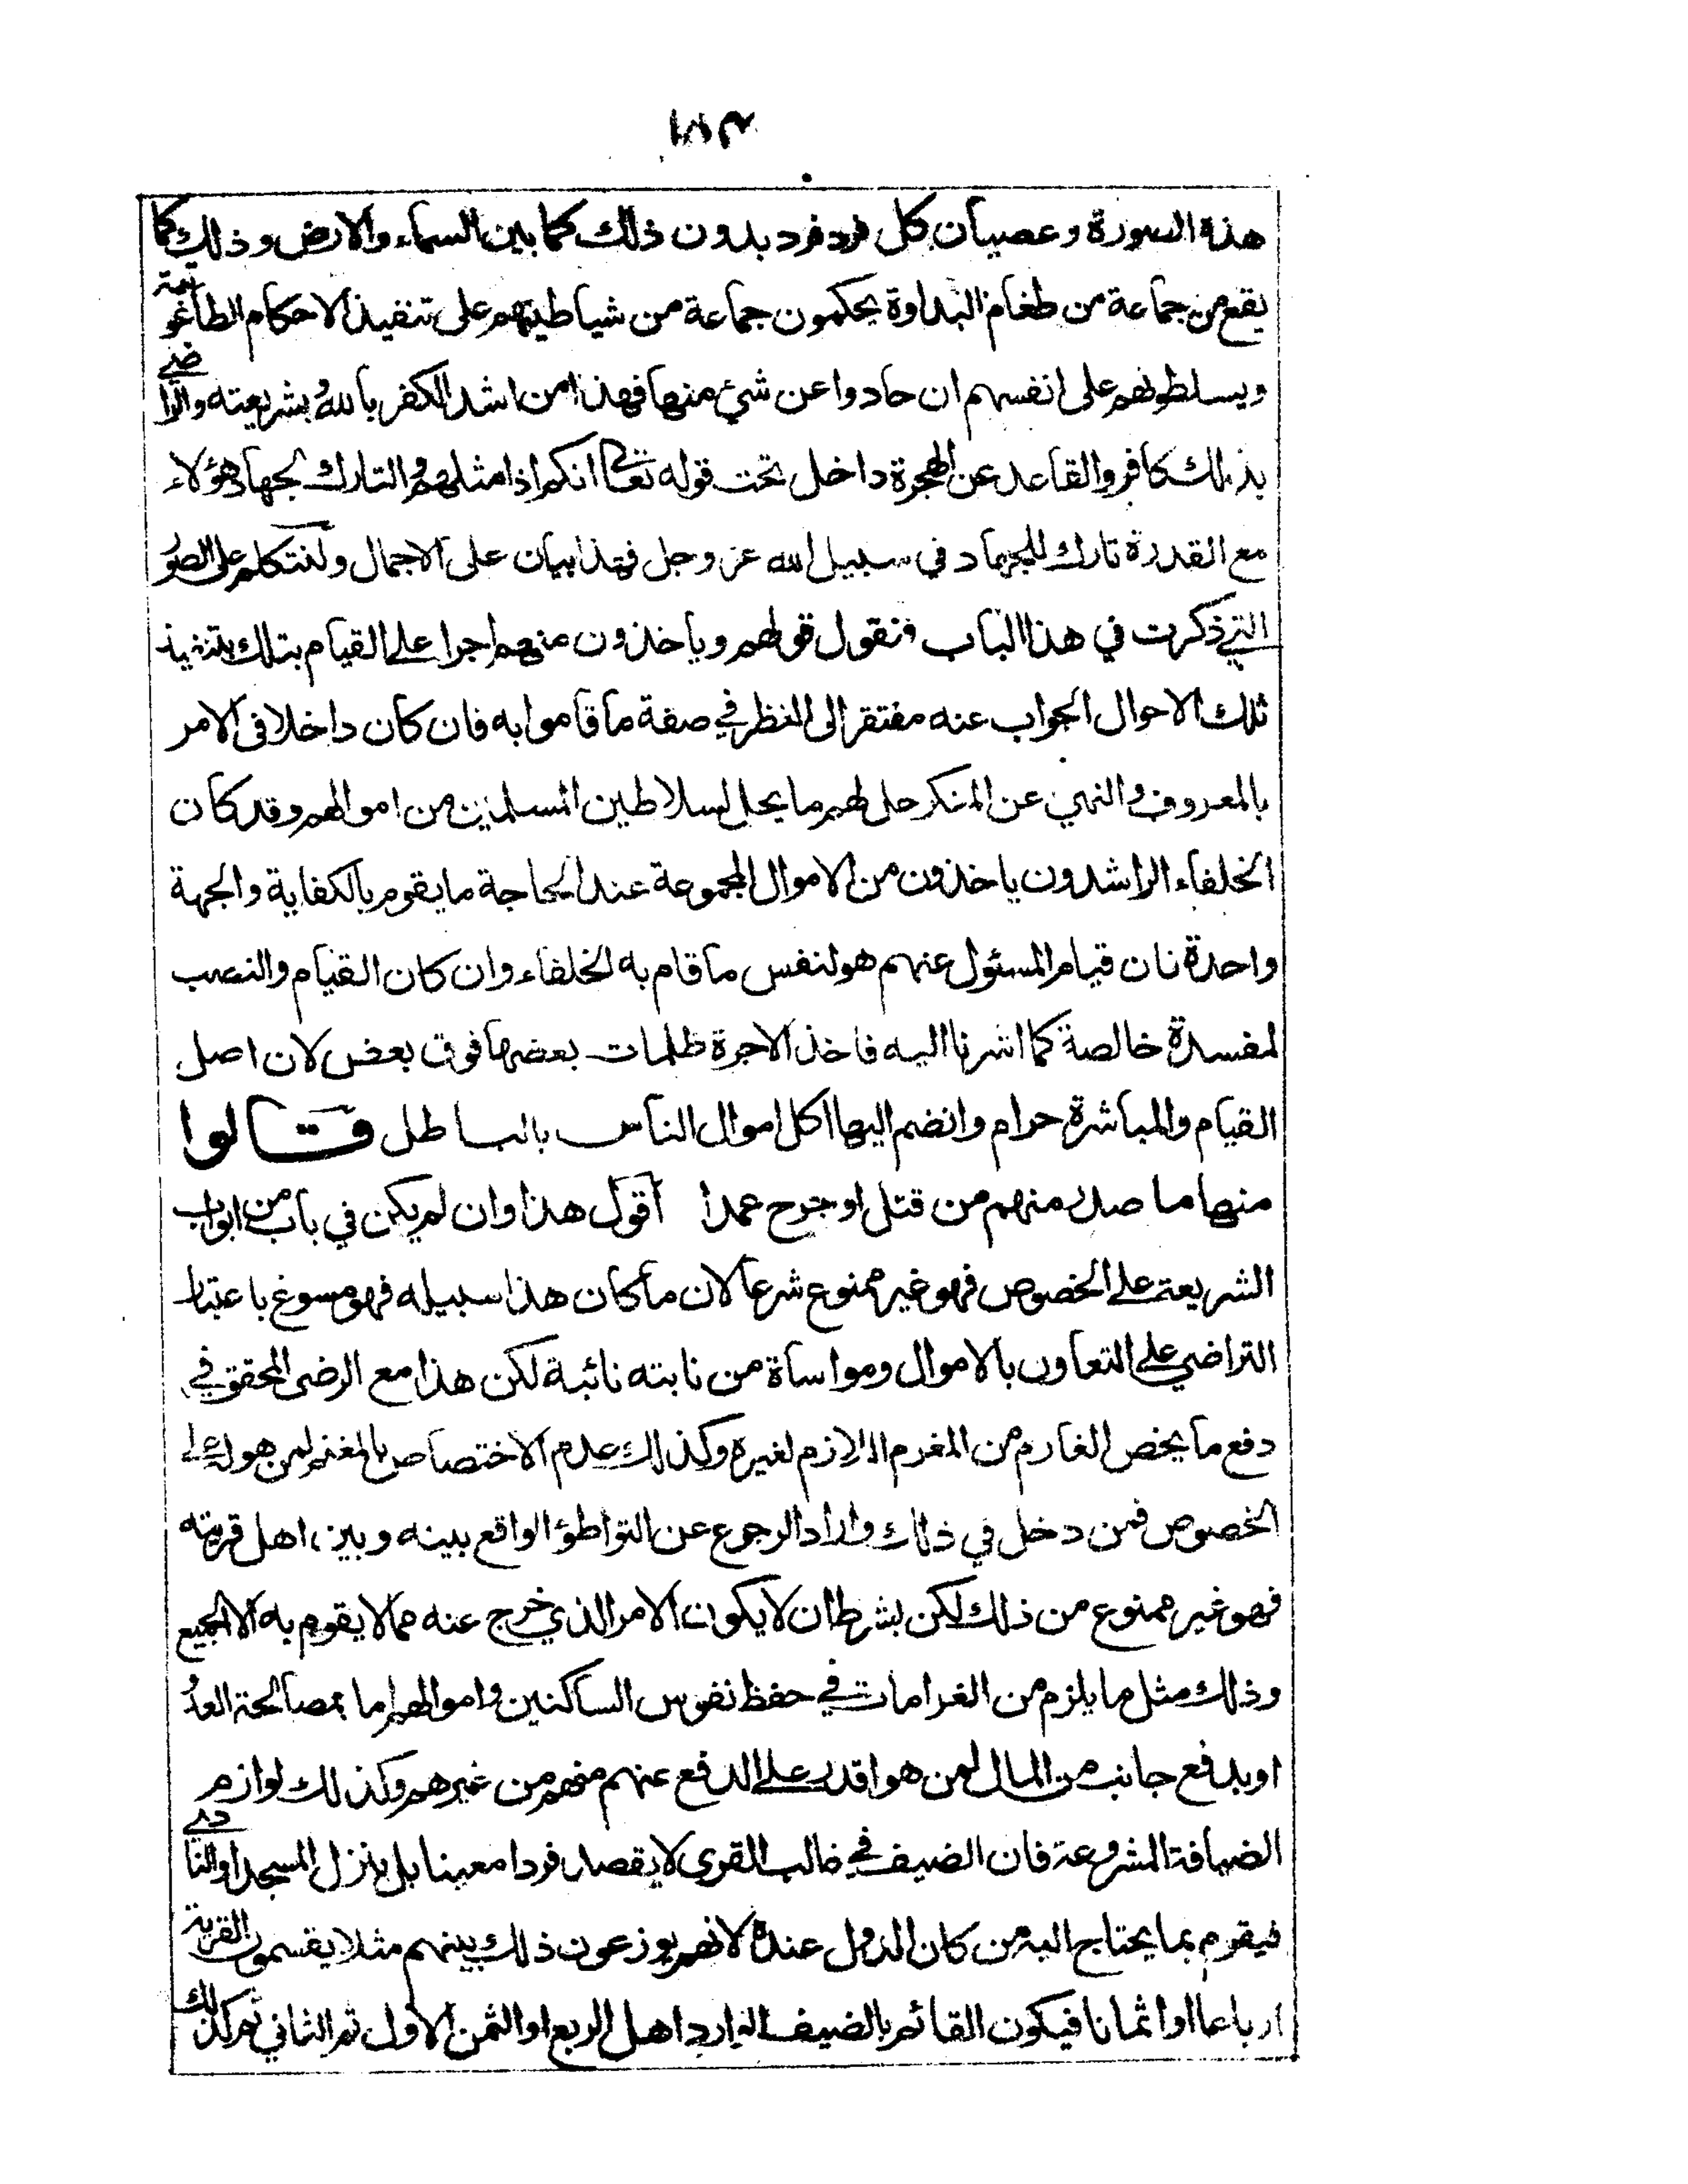 ١٨٣
هذه السورة وعصيان كل فرد فرد بدون ذلك كما بين السماء والارض وذلك كما
يقع من جماعة من طغام البداوة يحكمون جماعة من شياطينهم على تنفيذ الاحكام الطاغوتية
ويسلطونهم على انفسهم ان حادوا عن شئ منها فهذا من اشد الكفر بالله وبشريعته والراضي
بذلك كافر والقاعد عن الهجرة داخل تحت قوله تعالى انكم اذا مثلهم والتارك لجهاد هؤلاء
مع القدرة تارك للجهاد في سبيل الله عز وجل فهذا بيان على الاجمال ولنتكلم على الصور
التي ذكرت في هذا الباب فنقول قولهم وياخذون منهم اجرا على القيام بتلك بتنفيذ
تلك الاحوال الجواب عنه مفتقر الى النظر في صفة ما قاموا به فان كان داخلا في الامر
بالمعروف والنهي عن المنكر حل لهم ما يحل لسلاطين المسلمين من اموالهم وقد كان
الخلفاء الراشدون ياخذون من الاموال المجموعة عند الحاجة ما يقوم بالكفاية والجهة
واحدة فان قيام المسئول عنهم هو لنفس ما قام به الخلفاء وان كان القيام والنصب
لمفسدة خالصة كما اشرنا اليه فاخذ الاجرة ظلمات بعضها فوق بعض لان اصل
القيام والمباشرة حرام وانضم اليها اكل اموال الناس بالباطل قالوا
منها ما صدر منهم من قتل او جرح عمدا اقول هذا وان لم يكن في باب من ابواب
الشريعة على الخصوص فهو غير ممنوع شرعا لان ما كان هذا سبيله فهو مسوغ باعتبار
التراضي على التعاون بالاموال ومواساة من نابته نائبة لكن هذا مع الرضى المحقق في
دفع ما يخص الغارم من المغرم اللازم لغيره وكذلك عدم الاختصاص بالمغنم لمن هو له على
الخصوص فمن دخل في ذلك واراد الرجوع عن التواطؤ الواقع بينه وبين اهل قريته
فهو غير ممنوع من ذلك لكن بشرط ان لا يكون الامر الذي خرج عنه مما لا يقوم به الا الجميع
وذلك مثل ما يلزم من الغرامات في حفظ نفوس الساكنين واموالهم اما بمصالحة العدو
او بدفع جانب من المال لمن هو اقدر على الدفع عنهم منهم من غيرهم وكذلك لوازم
الضيافة المشروعة فان الضيف في غالب القرى لا يقصد فردا معينا بل ينزل المسجد او النادي
فيقوم بما يحتاج اليه من كان الدول عنده لانهم يوزعون ذلك بينهم مثلا يقسمون القرية
ارباعا او اثمانا فيكون القائم بالضيف الوارد اهل الربع او الثمن الاول ثم الثاني ثم كذلك